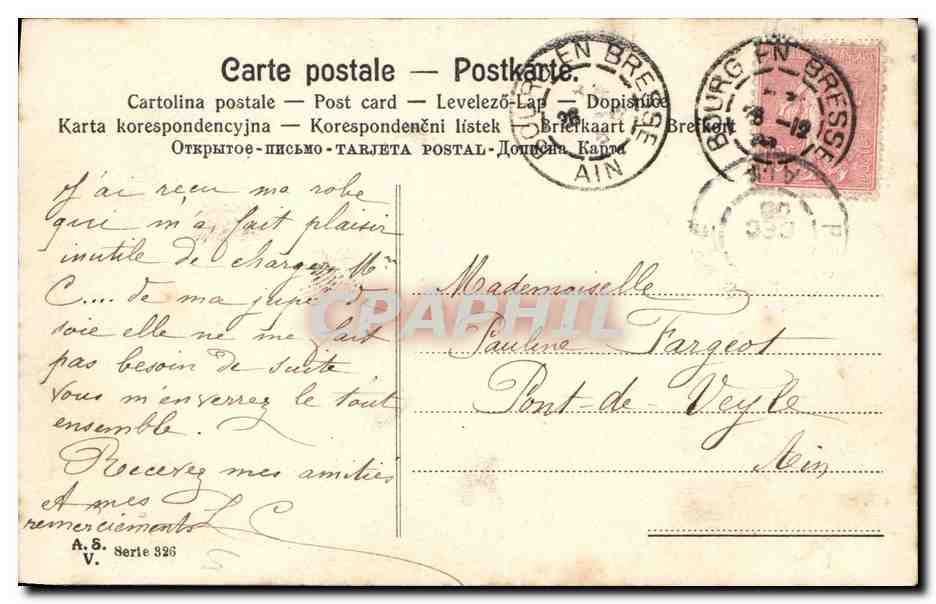 Carte postale — Postkarte.
Cartolina postale — Post card — Levelező-Lap — Dopisnice
Karta korespondencyjna — Korespondenčni listek — Brierkaart — Brefkort
Открытое-письмо-TARJETA POSTAL-Дописна Карта
BOURG EN BRESSE
AIN
BOURG EN BRESSE
AIN
DEC
J'ai reçu ma robe
qui m'a fait plaisir
inutile de charger Mme
C.... de ma jupe de
soie elle ne me fait
pas besoin de suite
Vous m'enverrez le tout
ensemble.
Recevez mes amitiés
A mes
remerciements
L C
Mademoiselle
Pauline Fargeot
Pont-de-Veyle
Ain
CPAPHIL
A. S.
V.
Serie 326